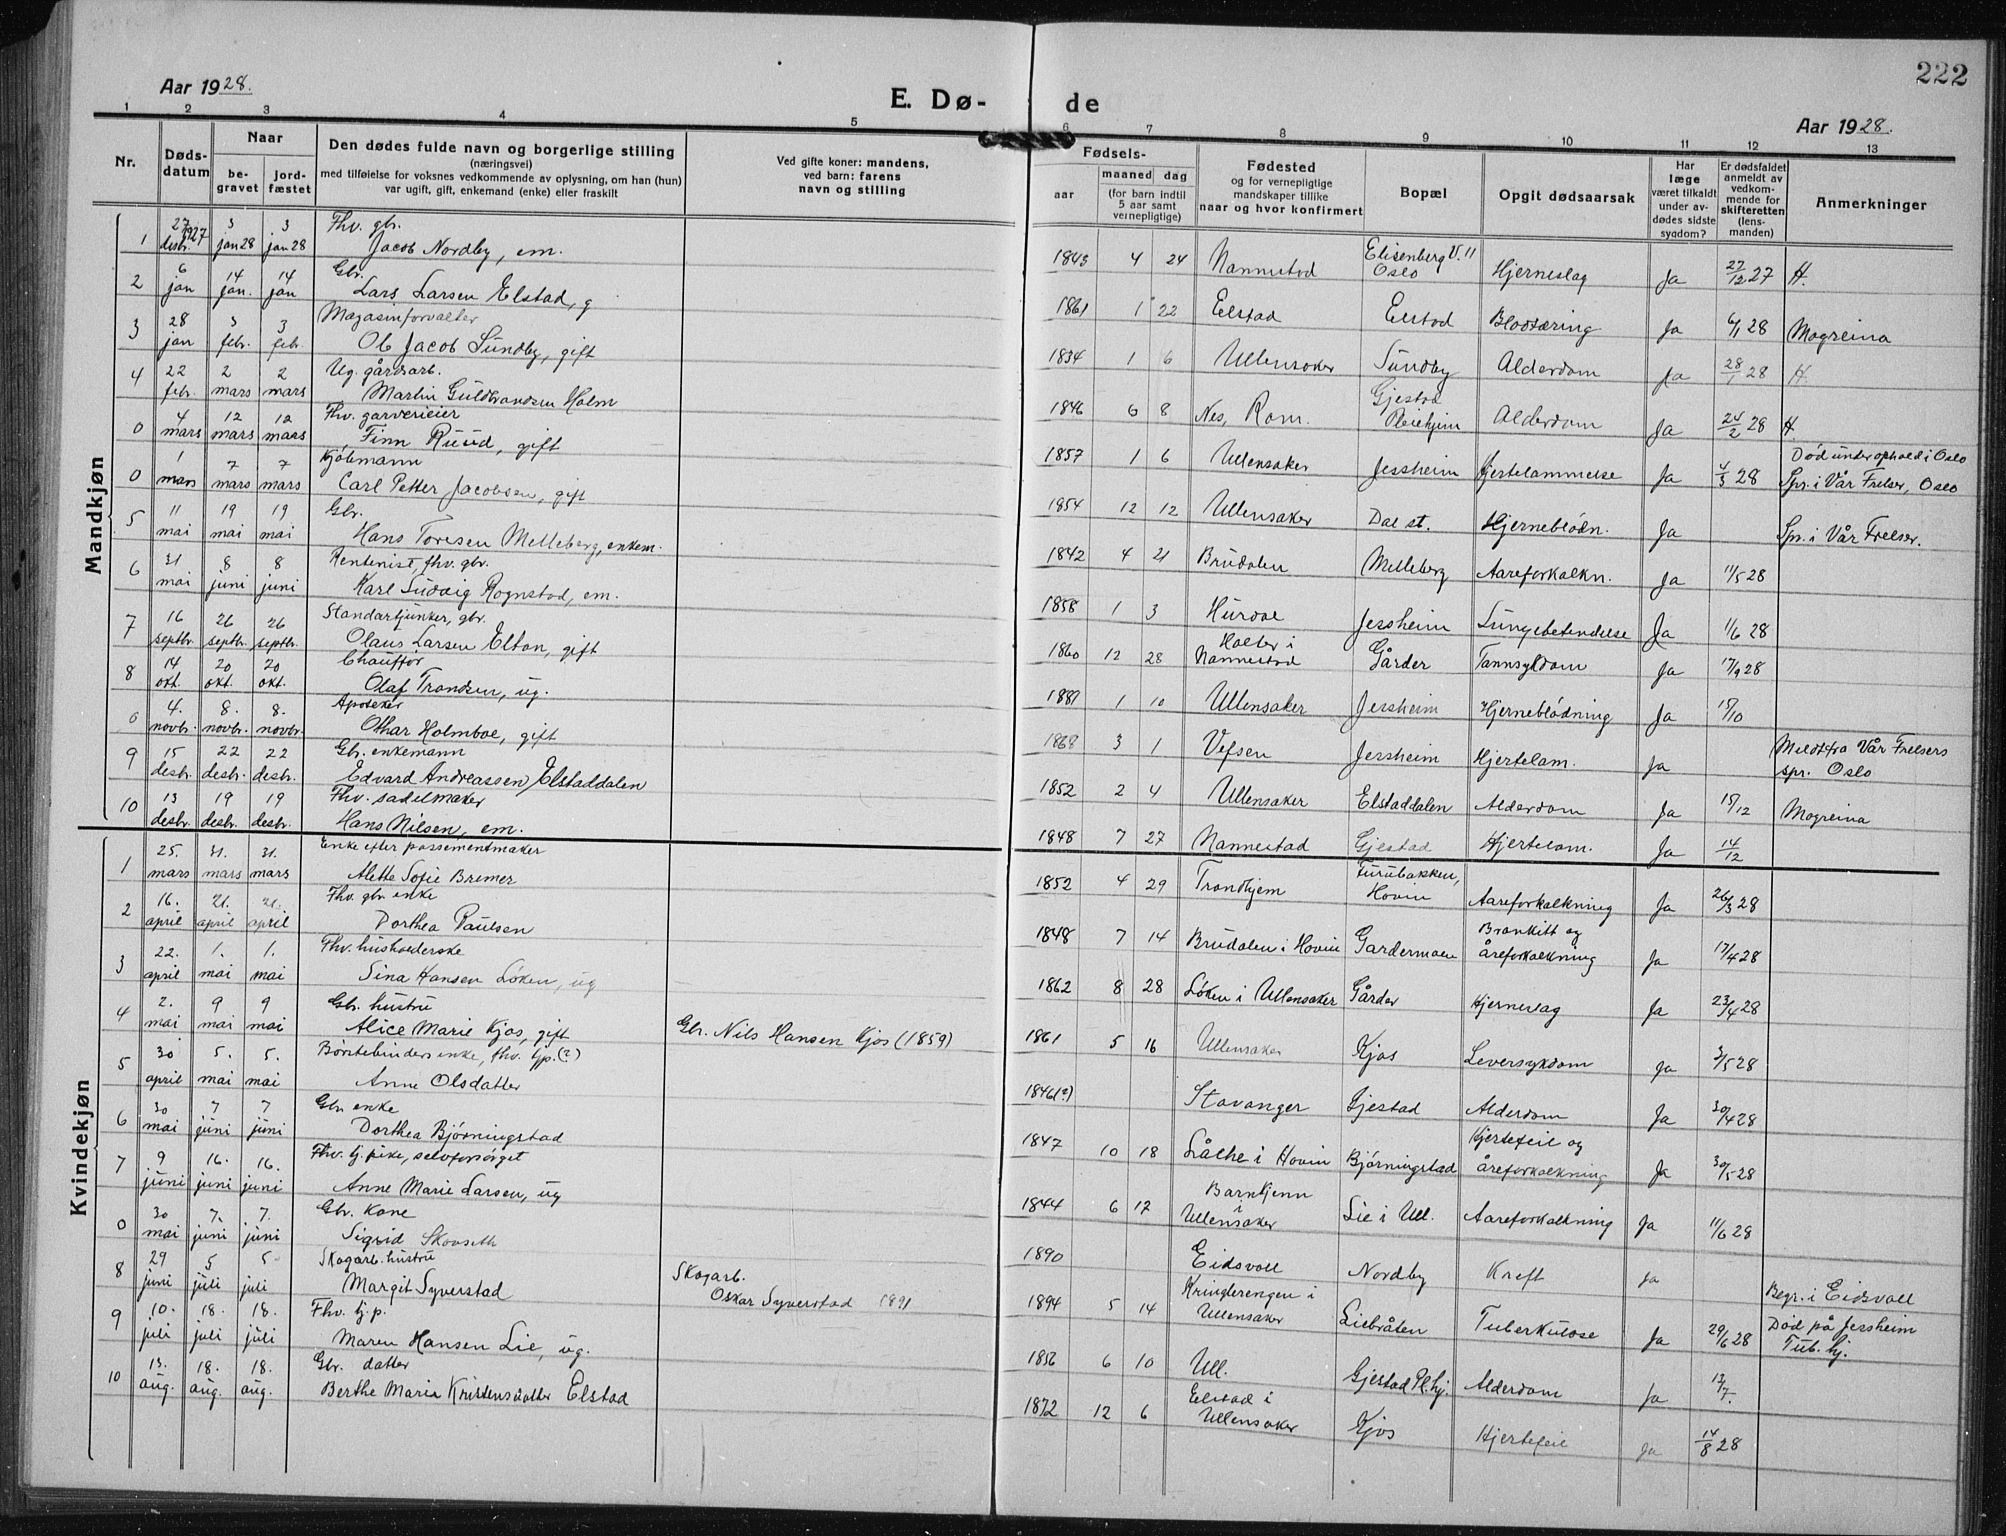 222
Aar 1928.
E. Dø-
de
Aar 1928.
1 2 3 4 5 6 7 8 9 10 11 12 13
Nr.
Døds-
datum
Naar
be-
gravet
jord-
fæstet
Den dødes fulde navn og borgerlige stilling
(næringsvei)
med tilføielse for voksnes vedkommende av oplysning, om han (hun)
var ugift, gift, enkemand (enke) eller fraskilt
Ved gifte koner: mandens,
ved barn: farens
navn og stilling
Fødsels-
aar
maaned dag
(for barn indtil
5 aar samt
vernepligtige)
Fødested
og for vernepligtige
mandskaper tillike
naar og hvor konfirmert
Bopæl
Opgit dødsaarsak
Har
læge
været tilkaldt
under av-
dødes sidste
sygdom?
Er dødsfaldet
anmeldt av
vedkom-
mende for
skifteretten
(lens-
manden)
Anmerkninger
Mandkjøn
1 27 desbr. 1927 3 jan 28 3 jan 28 Fhv. gbr. Jacob Nordby, em. 1843 4 24 Nannestad Elisenberg V. 11 Oslo Hjerneslag Ja 27/12 27 H.
2 6 jan 14 jan. 14 jan Gbr. Lars Larsen Elstad, g 1861 1 22 Elstad Elstad Ja 6/1 28 Mogreina
3 28 jan 3 febr. 3 febr Magasinforvalter Ole Jacob Sundby, gift 1834 1 6 Ullensaker Sundby Alderdom Ja 28/1 28 H
4 22 febr. 2 mars 2 mars Ug. gårdsarb. Martin Guldbrandsen Holm 1846 6 8 Nes, Rom. Gjestad Pleiehjem Alderdom Ja 24/2 28 H.
0 4 mars 12 mars 12 mars Fhv. garverieier Finn Ruud, gift 1857 1 6 Ullensaker Jessheim Hjertelammelse Ja 4/3 28 Død under ophold i Oslo Spr. i Vår Frelser, Oslo
0 1 mars 7 mars 7 mars Kjøbmann Carl Petter Jacobsen, gift 1854 12 12 Ullensaker Dal st. Hjerneblødn. Ja Spr. i Vår Frelser.
5 11 mai 19 mai 19 mai Gbr. Hans Toresen Melleberg, enkem. 1842 4 21 Brudalen Melleberg Aareforkalkn. Ja 11/5 28
6 31 mai 8 juni 8 juni Rentenist, fhv. gbr. Karl Ludvig Rognstad, em. 1858 1 3 Hurdal Jessheim Lungebetendelse Ja 1/6 28
7 16 septbr. 26 septbr. 26 septbr. Standartjunker, gbr. Olaus Larsen Elton, gift 1860 12 28 Holter i Nannestad Gårder Ja 17/9 28
8 14 okt. 20 okt. 20 okt. Chauffør Olaf Trondsen, ug. 1 10 Ullensaker Jessheim Hjerneblødning Ja 15/10
0 4. novbr. 8. novbr. 8. novbr. Apoteker Othar Holmboe, gift 1868 3 1 Vefsen Jessheim Hjertelam. Ja Meldt fra Vår Frelsers spr. Oslo
9 15 desbr. 22 desbr. 22 desbr. Gbr. enkemann Edvard Andreassen Elstaddalen 1852 2 4 Ullensaker Elstaddalen Alderdom Ja 15/12 Mogreina
10 13 desbr. 19 desbr. 19 desbr. Fhv. sadelmaker Hans Nilsen, em. 1848 7 27 Nannestad Gjestad Hjertelam. Ja 14/12
Kvindekjøn
1 25. mars 31. mars 31. mars Enke efter possementmaker Alette Sofie Bremer 1852 4 29 Trondhjem Furubakken, Hovin Aareforkalkning Ja 26/3 28
2 16. april 21. april 21. april Fhv. gbr. enke Dorthea Paulsen 1848 7 14 Brudalen i Hovin Gardermoen Bronkitt og åreforkalkning Ja 17/4 28
3 22. april 1. mai 1. mai Fhv. husholderske Sina Hansen Løken, ug 1862 8 28 Løken i Ullensaker Gårder Hjerneslag Ja 23/4 28
4 2. mai 9 mai 9 mai Gbr. hustru Alice Marie Kjos, gift Gbr. Nils Hansen Kjos (1859) 1861 5 16 Ullensaker Kjos Leversykdom Ja 3/5 28
5 30 april 5. mai 5. mai Børstebinders enke, fhv. tjp. (?) Anne Olsdatter 1846(?) Stavanger Gjestad Alderdom Ja 30/4 28
6 30 mai 7 juni 7 juni Gbr. enke Dorthea Bjørningstad 1847 10 18 Låche i Hovin Bjørningstad Hjertefeil og åreforkalkning Ja 30/5 28
7 9 juni 16. juni 16. juni Fhv. tj. pike, selvforsørget Anne Marie Larsen, ug 1844 6 12 Barnkjenn i Ullensaker Lie i Ull. Aareforkalkning Ja 11/6 28
0 30 mai 7. juni 7. juni Gbr. kone Sigrid Skovseth 1890 Eidsvoll Nordby Kreft Ja Begr. i Eidsvoll
8 29 juni 5 juli 5 juli Skogarb. hustru Margit Syverstad Skogarb. Oskar Syverstad 1891 1894 5 14 Kringlerengen i Ullensaker Liebråten Tuberkulose Ja 29/6 28 Død på Jessheim Tub. hj.
9 10. juli 18. juli 18. juli Fhv. tj. p. Maren Hansen Lie, ug. 1856 6 10 Ull. Gjestad Pl.hj. Alderdom Ja 12/7.
10 13. aug. 18. aug. 18. aug. Gbr. datter Berthe Maria Kristensdatter Elstad 1872 12 6 Elstad i Ullensaker Kjos Hjertefeil Ja 14/8 28